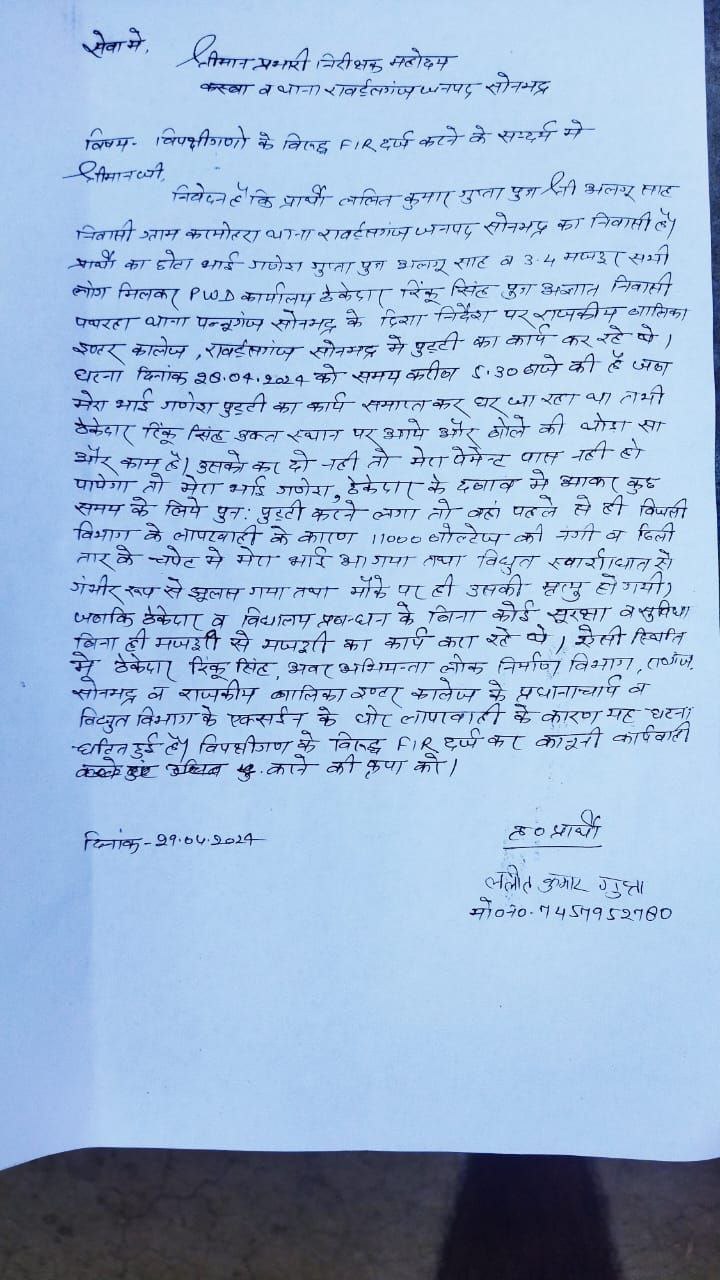 सेवा मे,
श्रीमान प्रभारी निरीक्षक महोदय
कस्बा व थाना रावर्ट्सगंज जनपद सोनभद्र
विषय- विपक्षीगणो के विरुद्ध FIR दर्ज करने के सन्दर्भ मे
श्रीमान जी,
निवेदन है कि प्रार्थी ललित कुमार गुप्ता पुत्र श्री अलगू साह
निवासी ग्राम थाना रावर्ट्सगंज जनपद सोनभद्र का निवासी है।
प्रार्थी का छोटा भाई गणेश गुप्ता पुत्र अलगू साह व 3-4 मजदूर सभी
लोग मिलकर PWD कार्यालय ठेकेदार रिंकू सिंह पुत्र अज्ञात निवासी
थाना पन्नूगंज सोनभद्र के दिशा निर्देश पर राजकीय बालिका
इण्टर कालेज, रावर्ट्सगंज सोनभद्र मे पुट्टी का कार्य कर रहे थे।
घटना दिनांक 28.04.2024 को समय करीब 5.30 बजे की है जब
मेरा भाई गणेश पुट्टी का कार्य समाप्त कर घर जा रहा था तभी
ठेकेदार रिंकू सिंह उक्त स्थान पर आये और बोले की थोडा सा
और काम है। उसको कर दो नही तो मेरा पेमेन्ट पास नही हो
पायेगा तो मेरा भाई गणेश, ठेकेदार के दबाव मे आकर कुछ
समय के लिये पुन: पुट्टी करने लगा तो वहां पहले से ही बिजली
विभाग के लापरवाही के कारण 11000 वोल्टेज की नंगी व ढिली
तार के चपेट मे मेरा भाई आ गया तथा विद्युत स्पर्शाघात से
गंभीर रूप से झुलस गया तथा मौके पर ही उसकी मृत्यु हो गयी।
जबकि ठेकेदार व विद्यालय प्रबन्धन के बिना कोई सुरक्षा व सुविधा
बिना ही मजदूरी से मजदूरी का कार्य करा रहे थे। ऐसी स्थिति
मे ठेकेदार रिंकू सिंह, अवर अभियन्ता लोक निर्माण विभाग,
सोनभद्र व राजकीय बालिका इण्टर कालेज के प्रधानाचार्य व
विद्युत विभाग के एक्सईन के घोर लापरवाही के कारण यह घटना
घटित हुई है। विपक्षीगण के विरुद्ध FIR दर्ज कर कानूनी कार्यवाही
करने की कृपा करे।
दिनांक-29.04.2024
ह० प्रार्थी
ललीत कुमार गुप्ता
मो०न०-7457952780